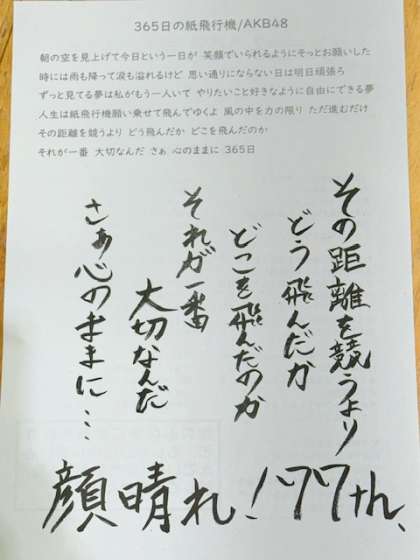 365日の紙飛行機/AKB48
朝の空を見上げて今日という一日が 笑顔でいられるようにそっとお願いした
時には雨も降って涙も溢れるけど 思い通りにならない日は明日頑張ろ
ずっと見てる夢は私がもう一人いて やりたいこと好きなように自由にできる夢
人生は紙飛行機願い乗せて飛んでゆくよ 風の中を力の限り ただ進むだけ
その距離を競うより どう飛んだか どこを飛んだのか
それが一番 大切なんだ さぁ 心のままに 365日
その距離を競うより
どう飛んだか
どこを飛んだのか
それが一番
大切なんだ
さぁ心のままに…
顔晴れ!77th、